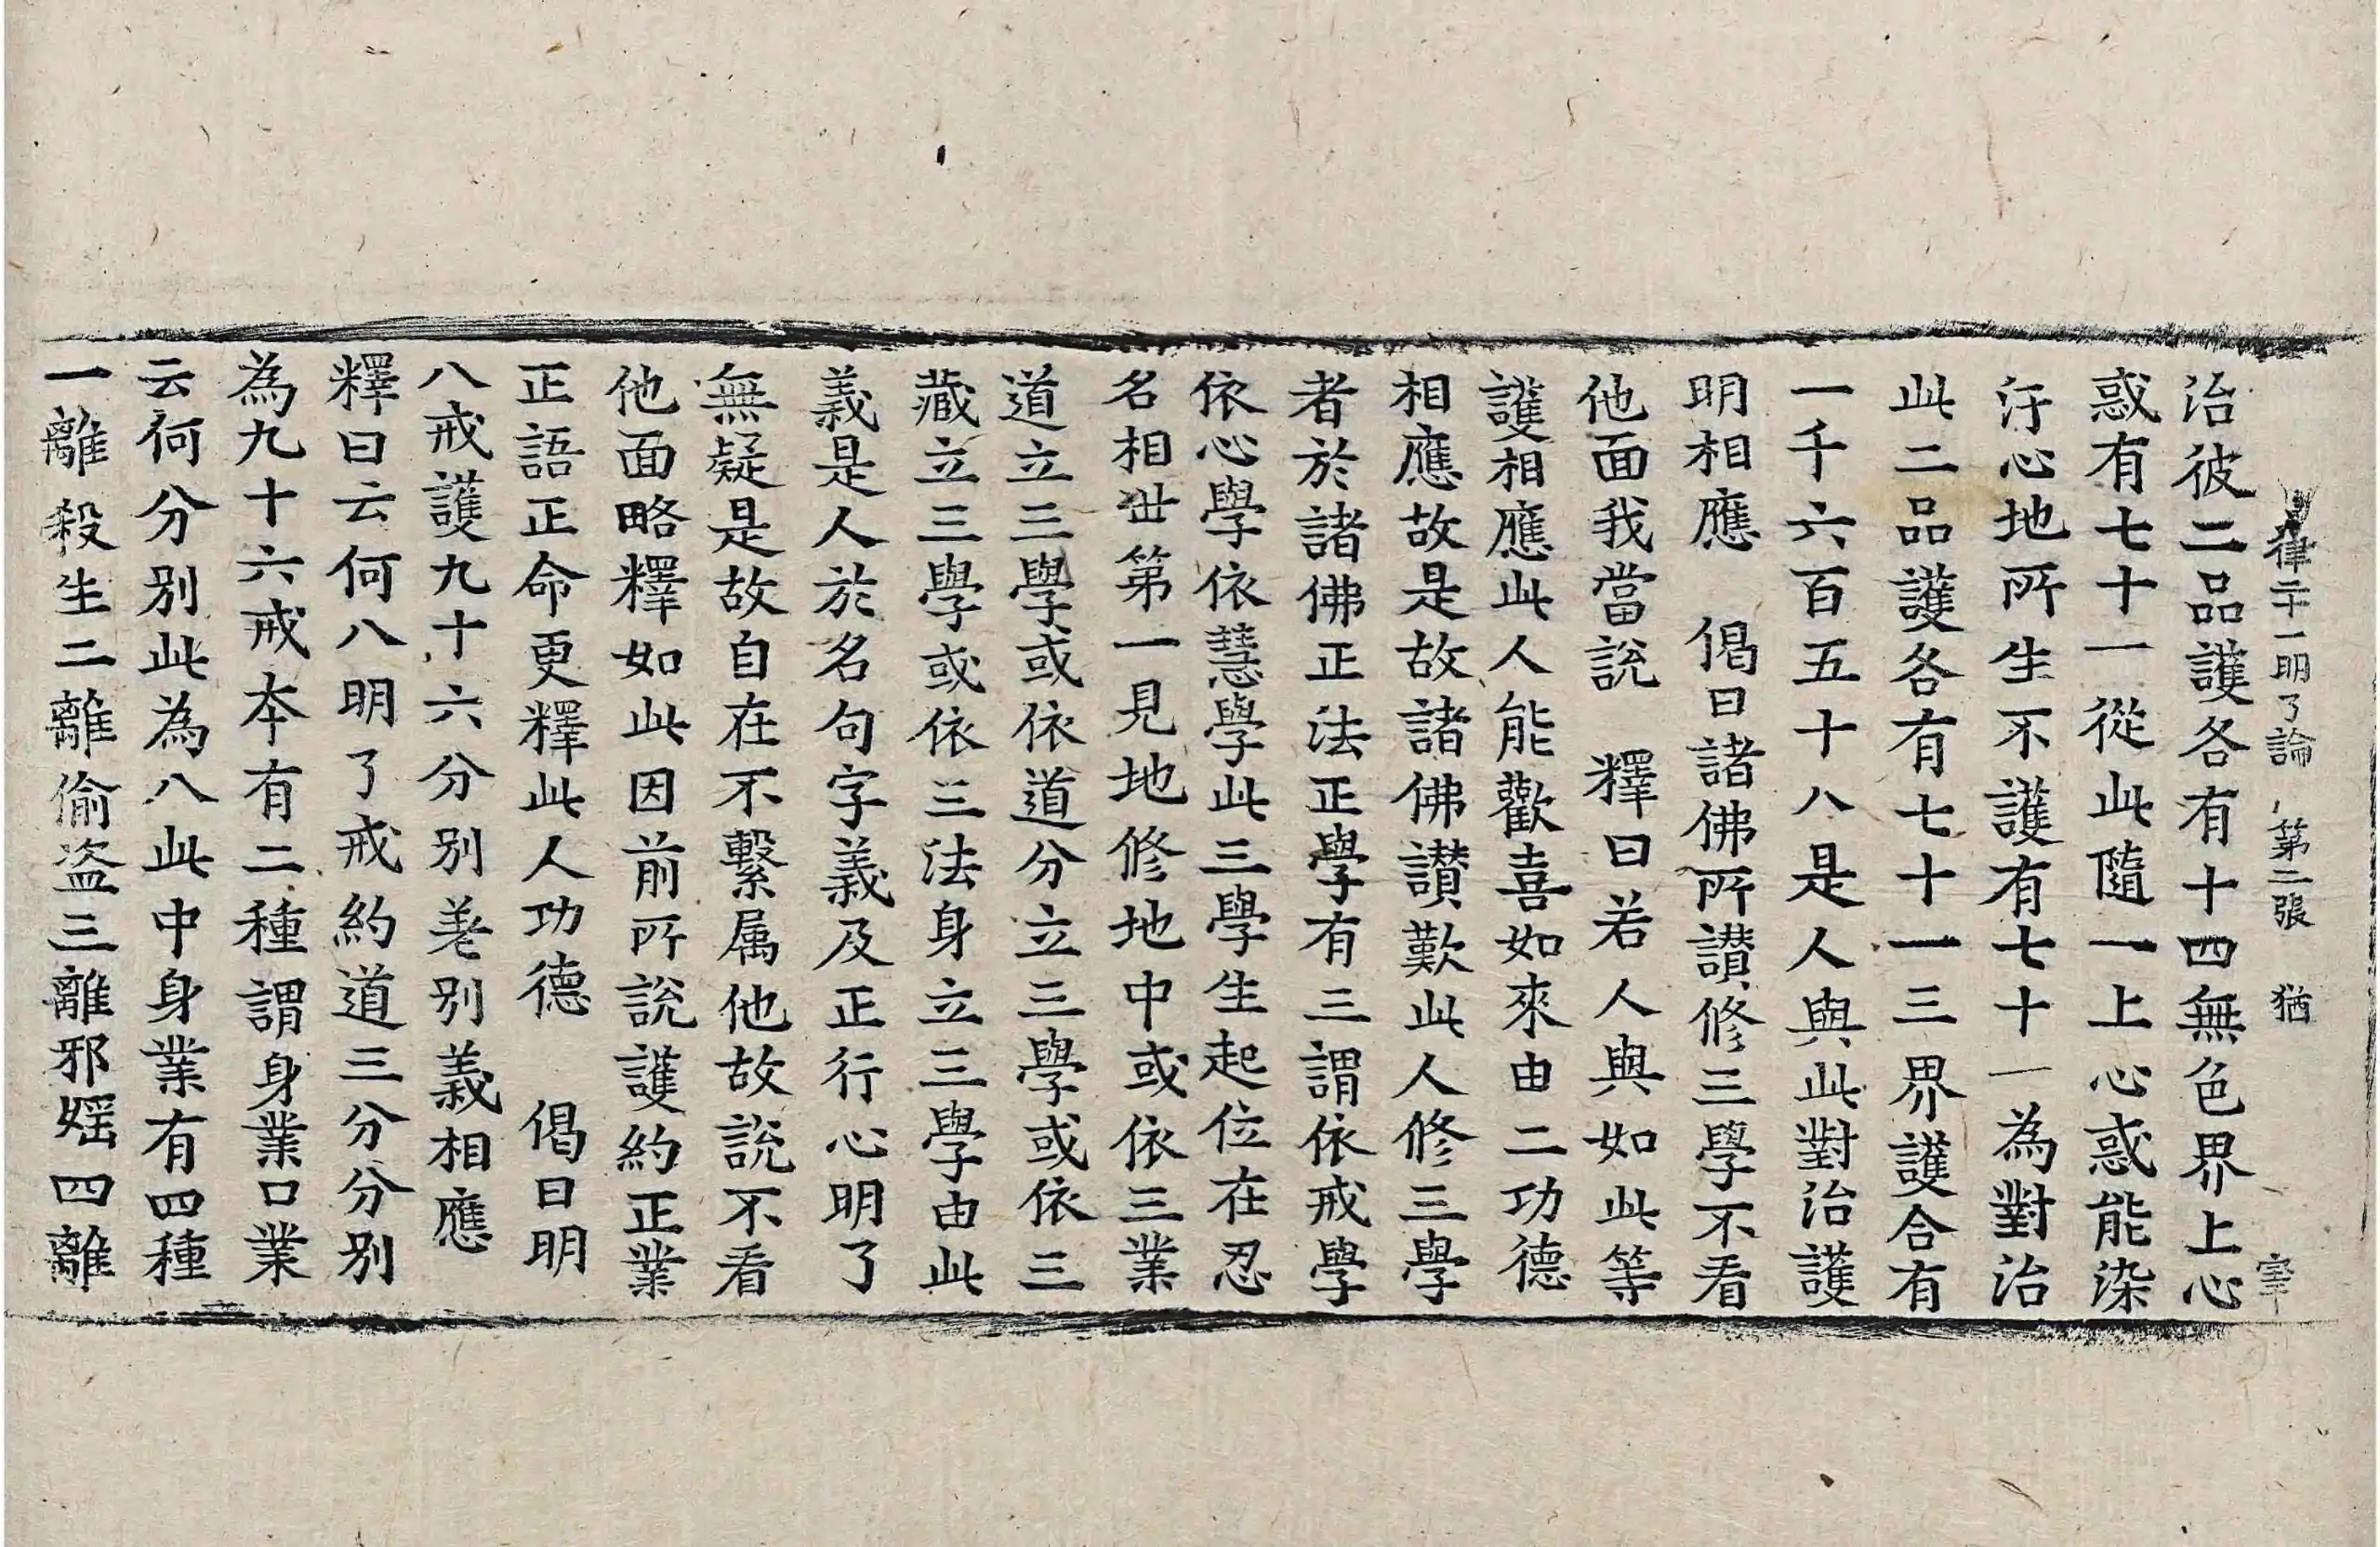 律二十一明了論 第二張 猶
治彼二品護各有十四無色界上心
惑有七十一從此隨一上心惑能染
汙心地所生不護有七十一為對治
此二品護各有七十一三界護合有
一千六百五十八是人與此對治護
明相應 偈曰諸佛所讃修三學不看
他面我當說 釋曰若人與如此等
護相應此人能歡喜如來由二功德
相應故是故諸佛讃歎此人修三學
者於諸佛正法正學有三謂依戒學
依心學依慧學此三學生起位在忍
名相世第一見地修地中或依三業
道立三學或依道分立三學或依三
藏立三學或依三法身立三學由此
義是人於名句字義及正行心明了
無疑是故自在不繫属他故說不看
他面略釋如此因前所說護約正業
正語正命更釋此人功德 偈曰明
八戒護九十六分別差別義相應
釋曰云何八明了戒約道三分分別
為九十六戒夲有二種謂身業口業
云何分別此為八此中身業有四種
一離殺生二離偷盗三離邪婬四離